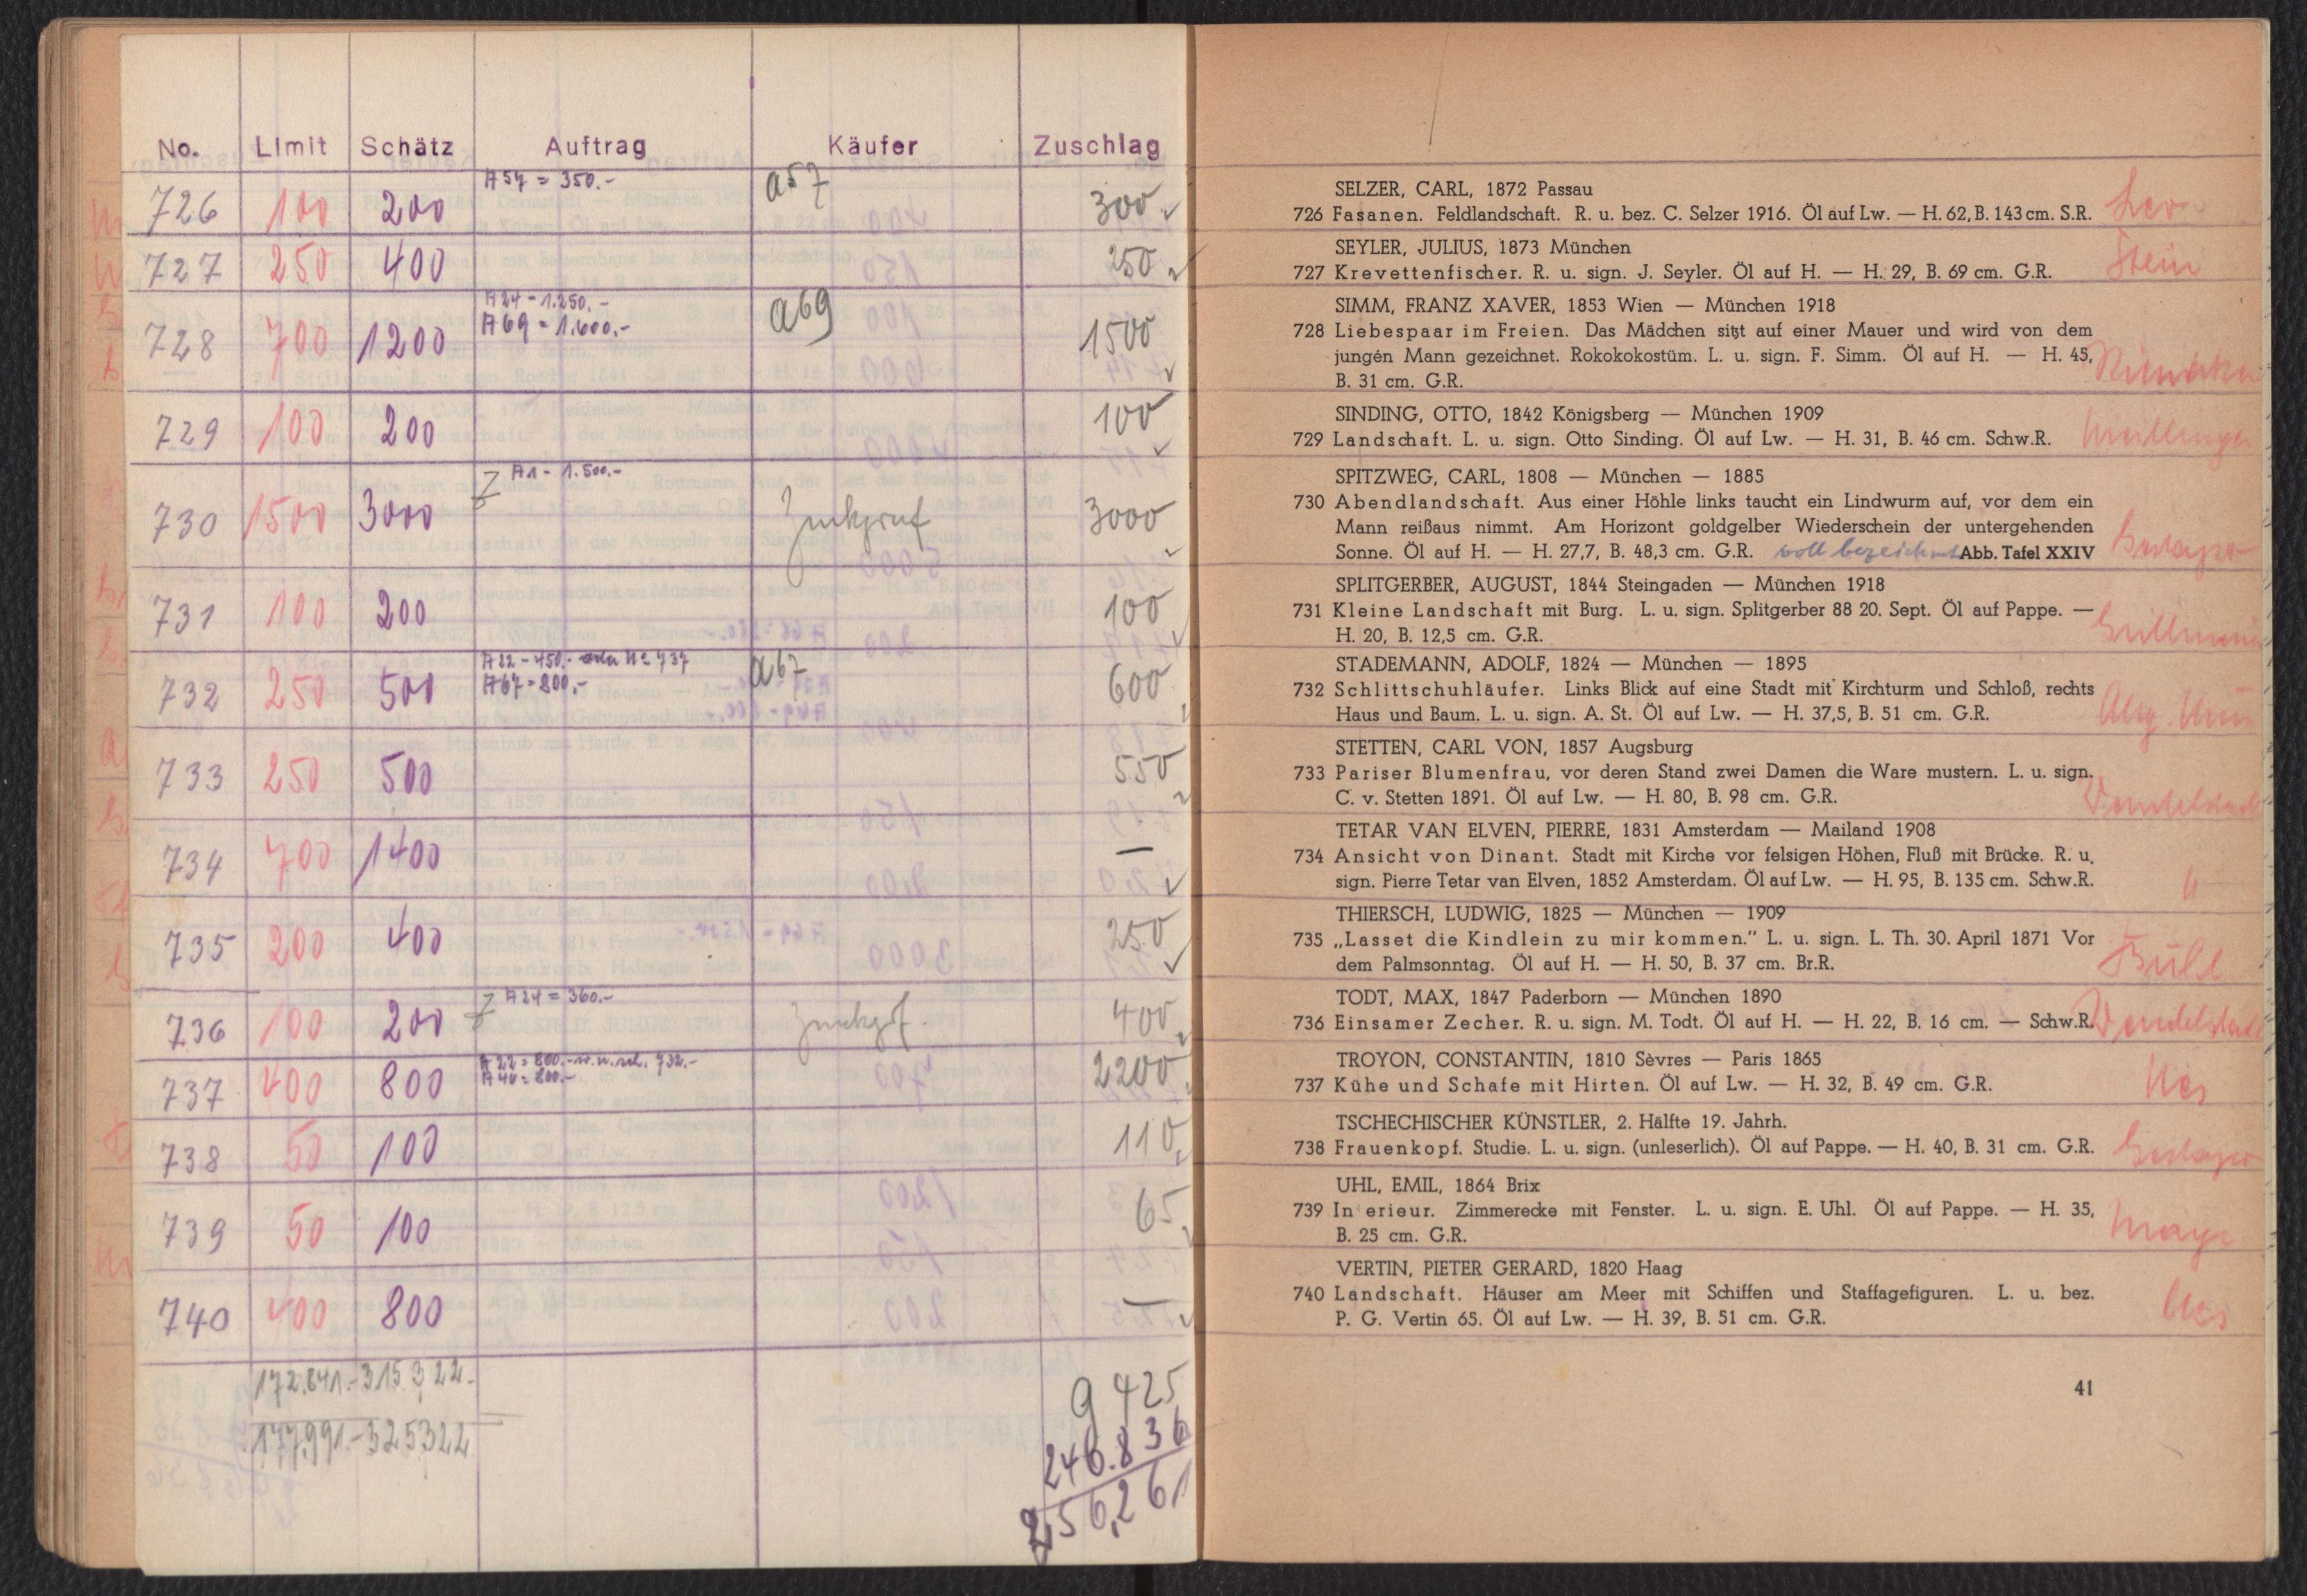 No. Limit Schätz Auftrag Käufer Zuschlag
726 100 200 A57 = 350.- a57 300
727 250 400 250
A24 - 1.250.-
728 700 1200 A69 = 1.600.- a69 1500
729 100 200 100
730 1500 3000 A1 - 1.500.- 3000
731 100 200 100
A22 - 450.- oder No 737
732 250 500 A67 = 800.- a67 600
733 250 500 550
734 700 1400 —
735 200 400 250
736 100 200 A24 = 360.- 400
737 400 800 A22 = 800.- 732.- 2200
A40 = 800.-
738 50 100 110
739 50 100 65
740 400 800 —
172.641.- 315 322.-
177.991.- 325322
9 425
246.836
256,261
SELZER, CARL, 1872 Passau
726 Fasanen. Feldlandschaft. R. u. bez. C. Selzer 1916. Öl auf Lw. — H. 62, B. 143 cm. S.R.
SEYLER, JULIUS, 1873 München
727 Krevettenfischer. R. u. sign. J. Seyler. Öl auf H. — H. 29, B. 69 cm. G.R. Stein
SIMM, FRANZ XAVER, 1853 Wien — München 1918
728 Liebespaar im Freien. Das Mädchen sitzt auf einer Mauer und wird von dem
jungén Mann gezeichnet. Rokokokostüm. L. u. sign. F. Simm. Öl auf H. — H. 45,
B. 31 cm. G.R.
SINDING, OTTO, 1842 Königsberg — München 1909
729 Landschaft. L. u. sign. Otto Sinding. Öl auf Lw. — H. 31, B. 46 cm. Schw.R.
SPITZWEG, CARL, 1808 — München — 1885
730 Abendlandschaft. Aus einer Höhle links taucht ein Lindwurm auf, vor dem ein
Mann reißaus nimmt. Am Horizont goldgelber Wiederschein der untergehenden
Sonne. Öl auf H. — H. 27,7, B. 48,3 cm. G.R. voll bezeichnet Abb. Tafel XXIV
SPLITGERBER, AUGUST, 1844 Steingaden — München 1918
731 Kleine Landschaft mit Burg. L. u. sign. Splitgerber 88 20. Sept. Öl auf Pappe. —
H. 20, B. 12,5 cm. G.R.
STADEMANN, ADOLF, 1824 — München — 1895
732 Schlittschuhläufer. Links Blick auf eine Stadt mit Kirchturm und Schloß, rechts
Haus und Baum. L. u. sign. A. St. Öl auf Lw. — H. 37,5, B. 51 cm. G.R.
STETTEN, CARL VON, 1857 Augsburg
733 Pariser Blumenfrau, vor deren Stand zwei Damen die Ware mustern. L. u. sign.
C. v. Stetten 1891. Öl auf Lw. — H. 80, B. 98 cm. G.R.
TETAR VAN ELVEN, PIERRE, 1831 Amsterdam — Mailand 1908
734 Ansicht von Dinant. Stadt mit Kirche vor felsigen Höhen, Fluß mit Brücke. R. u.
sign. Pierre Tetar van Elven, 1852 Amsterdam. Öl auf Lw. — H. 95, B. 135 cm. Schw.R.
THIERSCH, LUDWIG, 1825 — München — 1909
735 „Lasset die Kindlein zu mir kommen." L. u. sign. L. Th. 30. April 1871 Vor
dem Palmsonntag. Öl auf H. — H. 50, B. 37 cm. Br.R.
TODT, MAX, 1847 Paderborn — München 1890
736 Einsamer Zecher. R. u. sign. M. Todt. Öl auf H. — H. 22, B. 16 cm. — Schw.R.
TROYON, CONSTANTIN, 1810 Sèvres — Paris 1865
737 Kühe und Schafe mit Hirten. Öl auf Lw. — H. 32, B. 49 cm. G.R.
TSCHECHISCHER KÜNSTLER, 2. Hälfte 19. Jahrh.
738 Frauenkopf. Studie. L. u. sign. (unleserlich). Öl auf Pappe. — H. 40, B. 31 cm. G.R.
UHL, EMIL, 1864 Brix
739 In erieur. Zimmerecke mit Fenster. L. u. sign. E. Uhl. Öl auf Pappe. — H. 35,
B. 25 cm. G.R.
VERTIN, PIETER GERARD, 1820 Haag
740 Landschaft. Häuser am Meer mit Schiffen und Staffagefiguren. L. u. bez.
P. G. Vertin 65. Öl auf Lw. — H. 39, B. 51 cm. G.R.
41